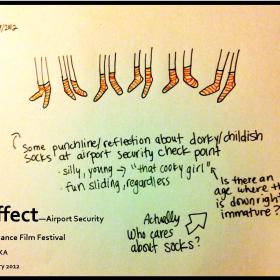 /2012
Some punchline/reflection about dorky/childish
socks at airport security check point
· silly, young → "that cooky girl"
· fun sliding, regardless
Is there an
age where th
is downrigh
immature?
Actually
Who cares
about socks?
ffect—Airport Security
ance Film Festival
KA
ry 2012